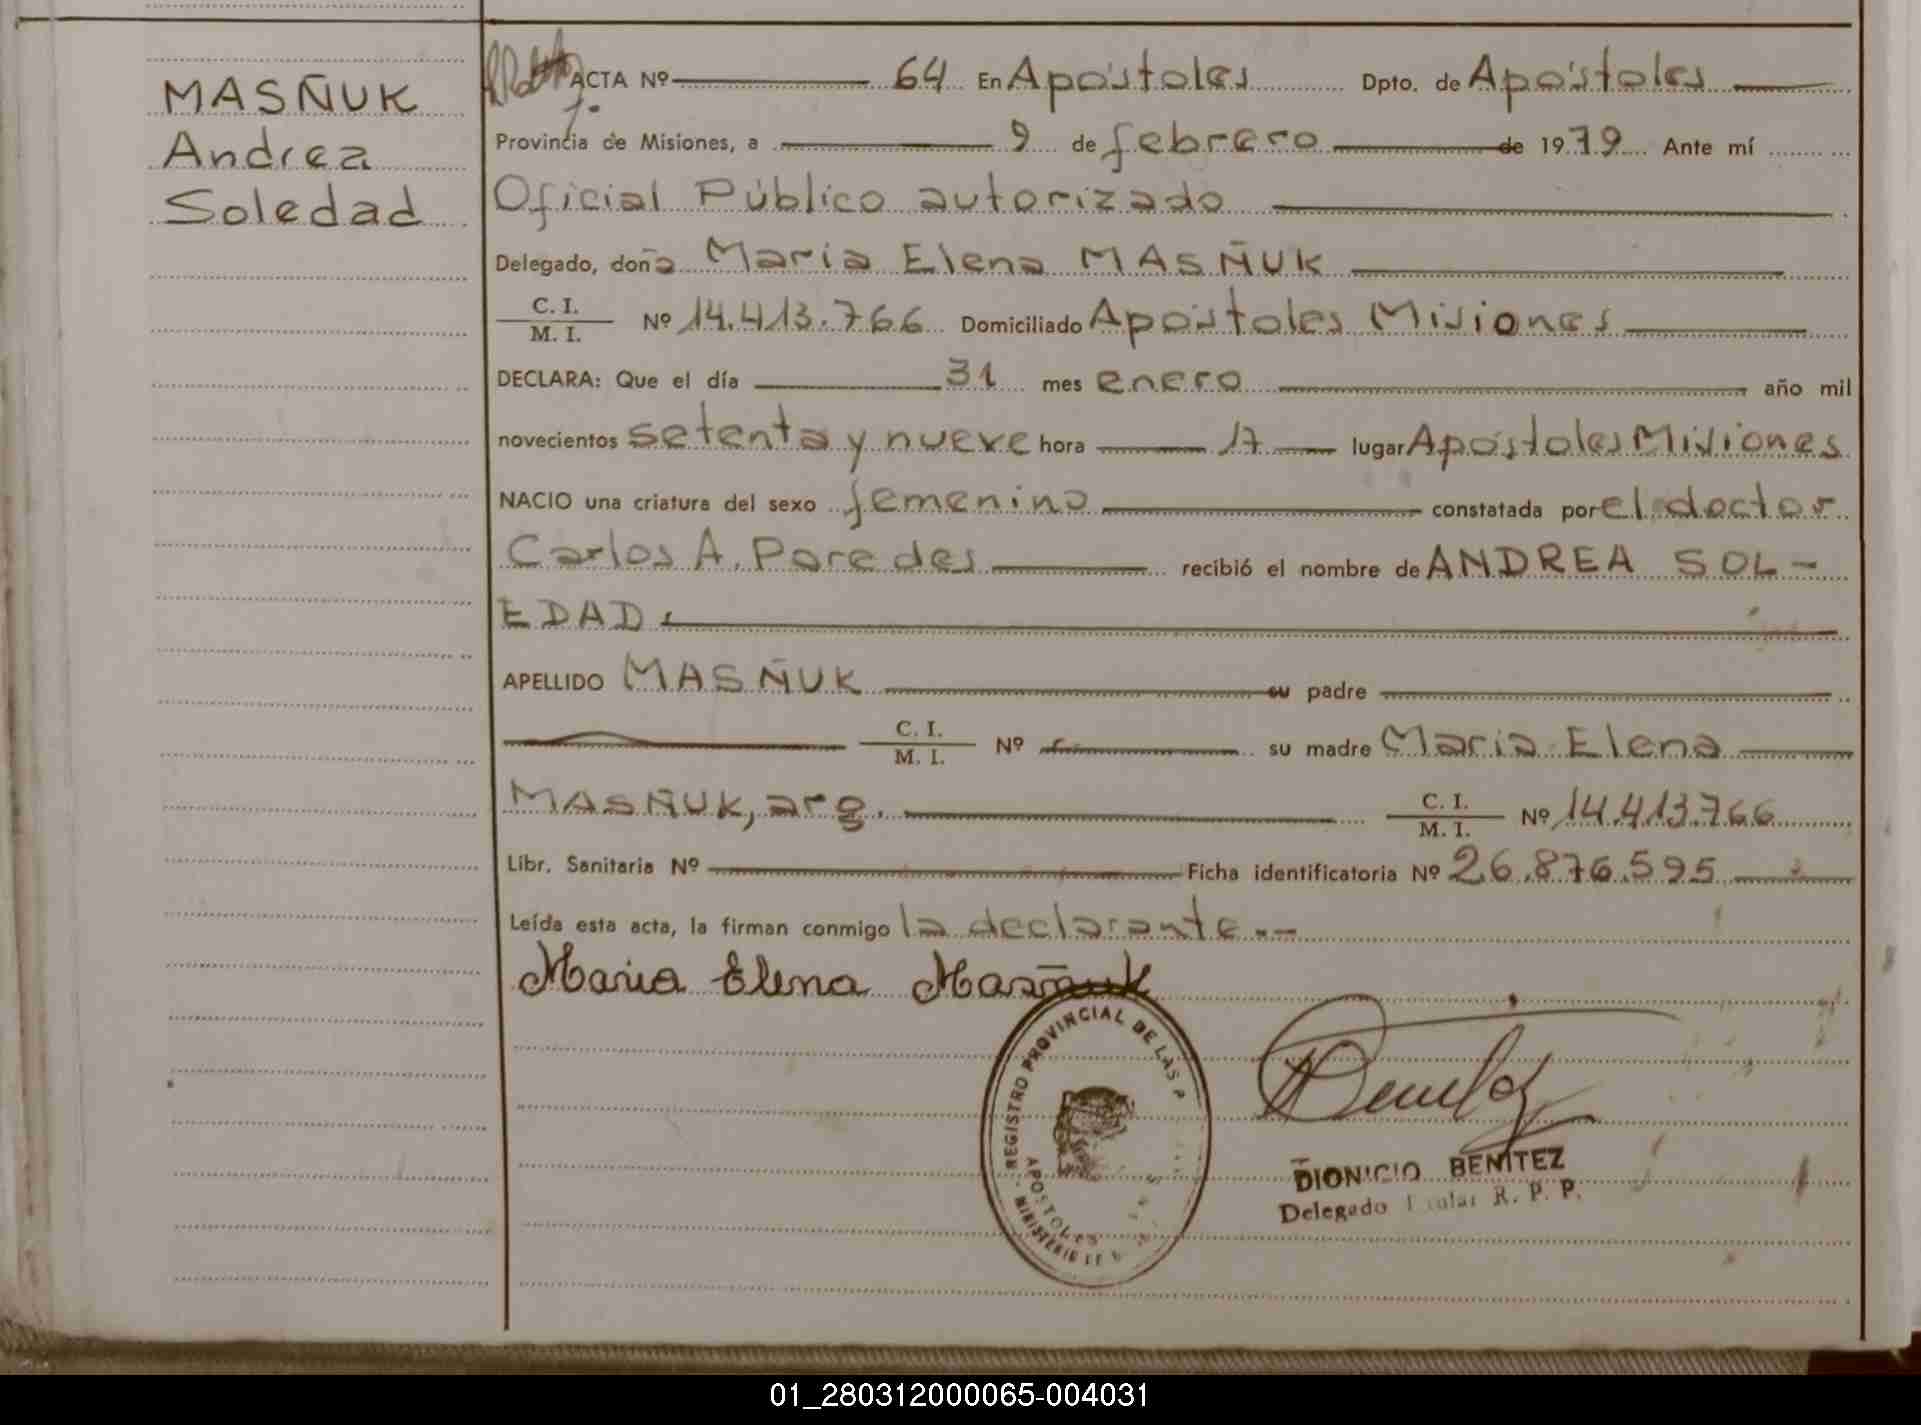 MASÑUK
Andrea
Soledad
ACTA Nº 64 En Apóstoles Dpto. de Apóstoles
Provincia de Misiones, a 9 de febrero de 1979 Ante mí
Oficial Público autorizado
Delegado, doña Maria Elena MASÑUK
C. I.
M. I. Nº 14.413.766 Domiciliado Apóstoles Misiones
DECLARA: Que el día 31 mes enero año mil
novecientos setenta y nueve hora 17 lugar Apóstoles Misiones
NACIO una criatura del sexo femenino constatada por el doctor
Carlos A. Paredes recibió el nombre de ANDREA SOL-
EDAD
APELLIDO MASÑUK su padre
C. I.
M. I. Nº su madre Maria Elena
MASÑUK, arg. C. I.
M. I. Nº 14.413.766
Libr. Sanitaria Nº Ficha identificatoria Nº 26.876.595
Leída esta acta, la firman conmigo la declarante.--
Maria Elena Masñuk
REGISTRO PROVINCIAL DE LAS P
APOSTOLES
MINISTERIO DE G
DIONICIO BENITEZ
Delegado Titular R. P. P.
01_280312000065-004031